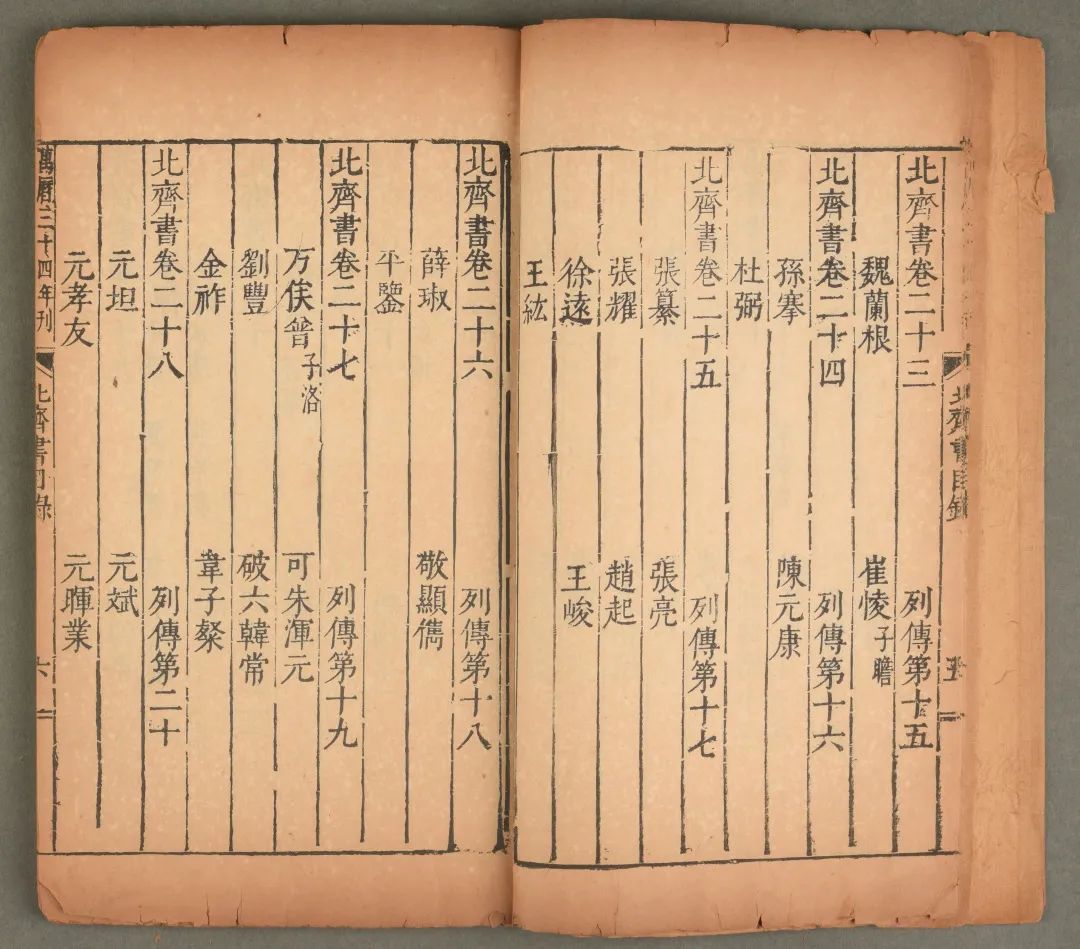 北齊書目錄
五
北齊書卷二十三 列傳第十五
魏蘭根 崔㥄子瞻
北齊書卷二十四 列傳第十六
孫搴 陳元康
杜弼
北齊書卷二十五 列傳第十七
張纂 張亮
張耀 趙起
徐遠 王峻
王紘
北齊書卷二十六 列傳第十八
薛琡 敬顯儁
平鑒
北齊書卷二十七 列傳第十九
万俟普子洛 可朱渾元
劉豐 破六韓常
金祚 韋子粲
北齊書卷二十八 列傳第二十
元坦 元斌
元孝友 元暉業
萬曆三十四年刊
北齊書目錄
六